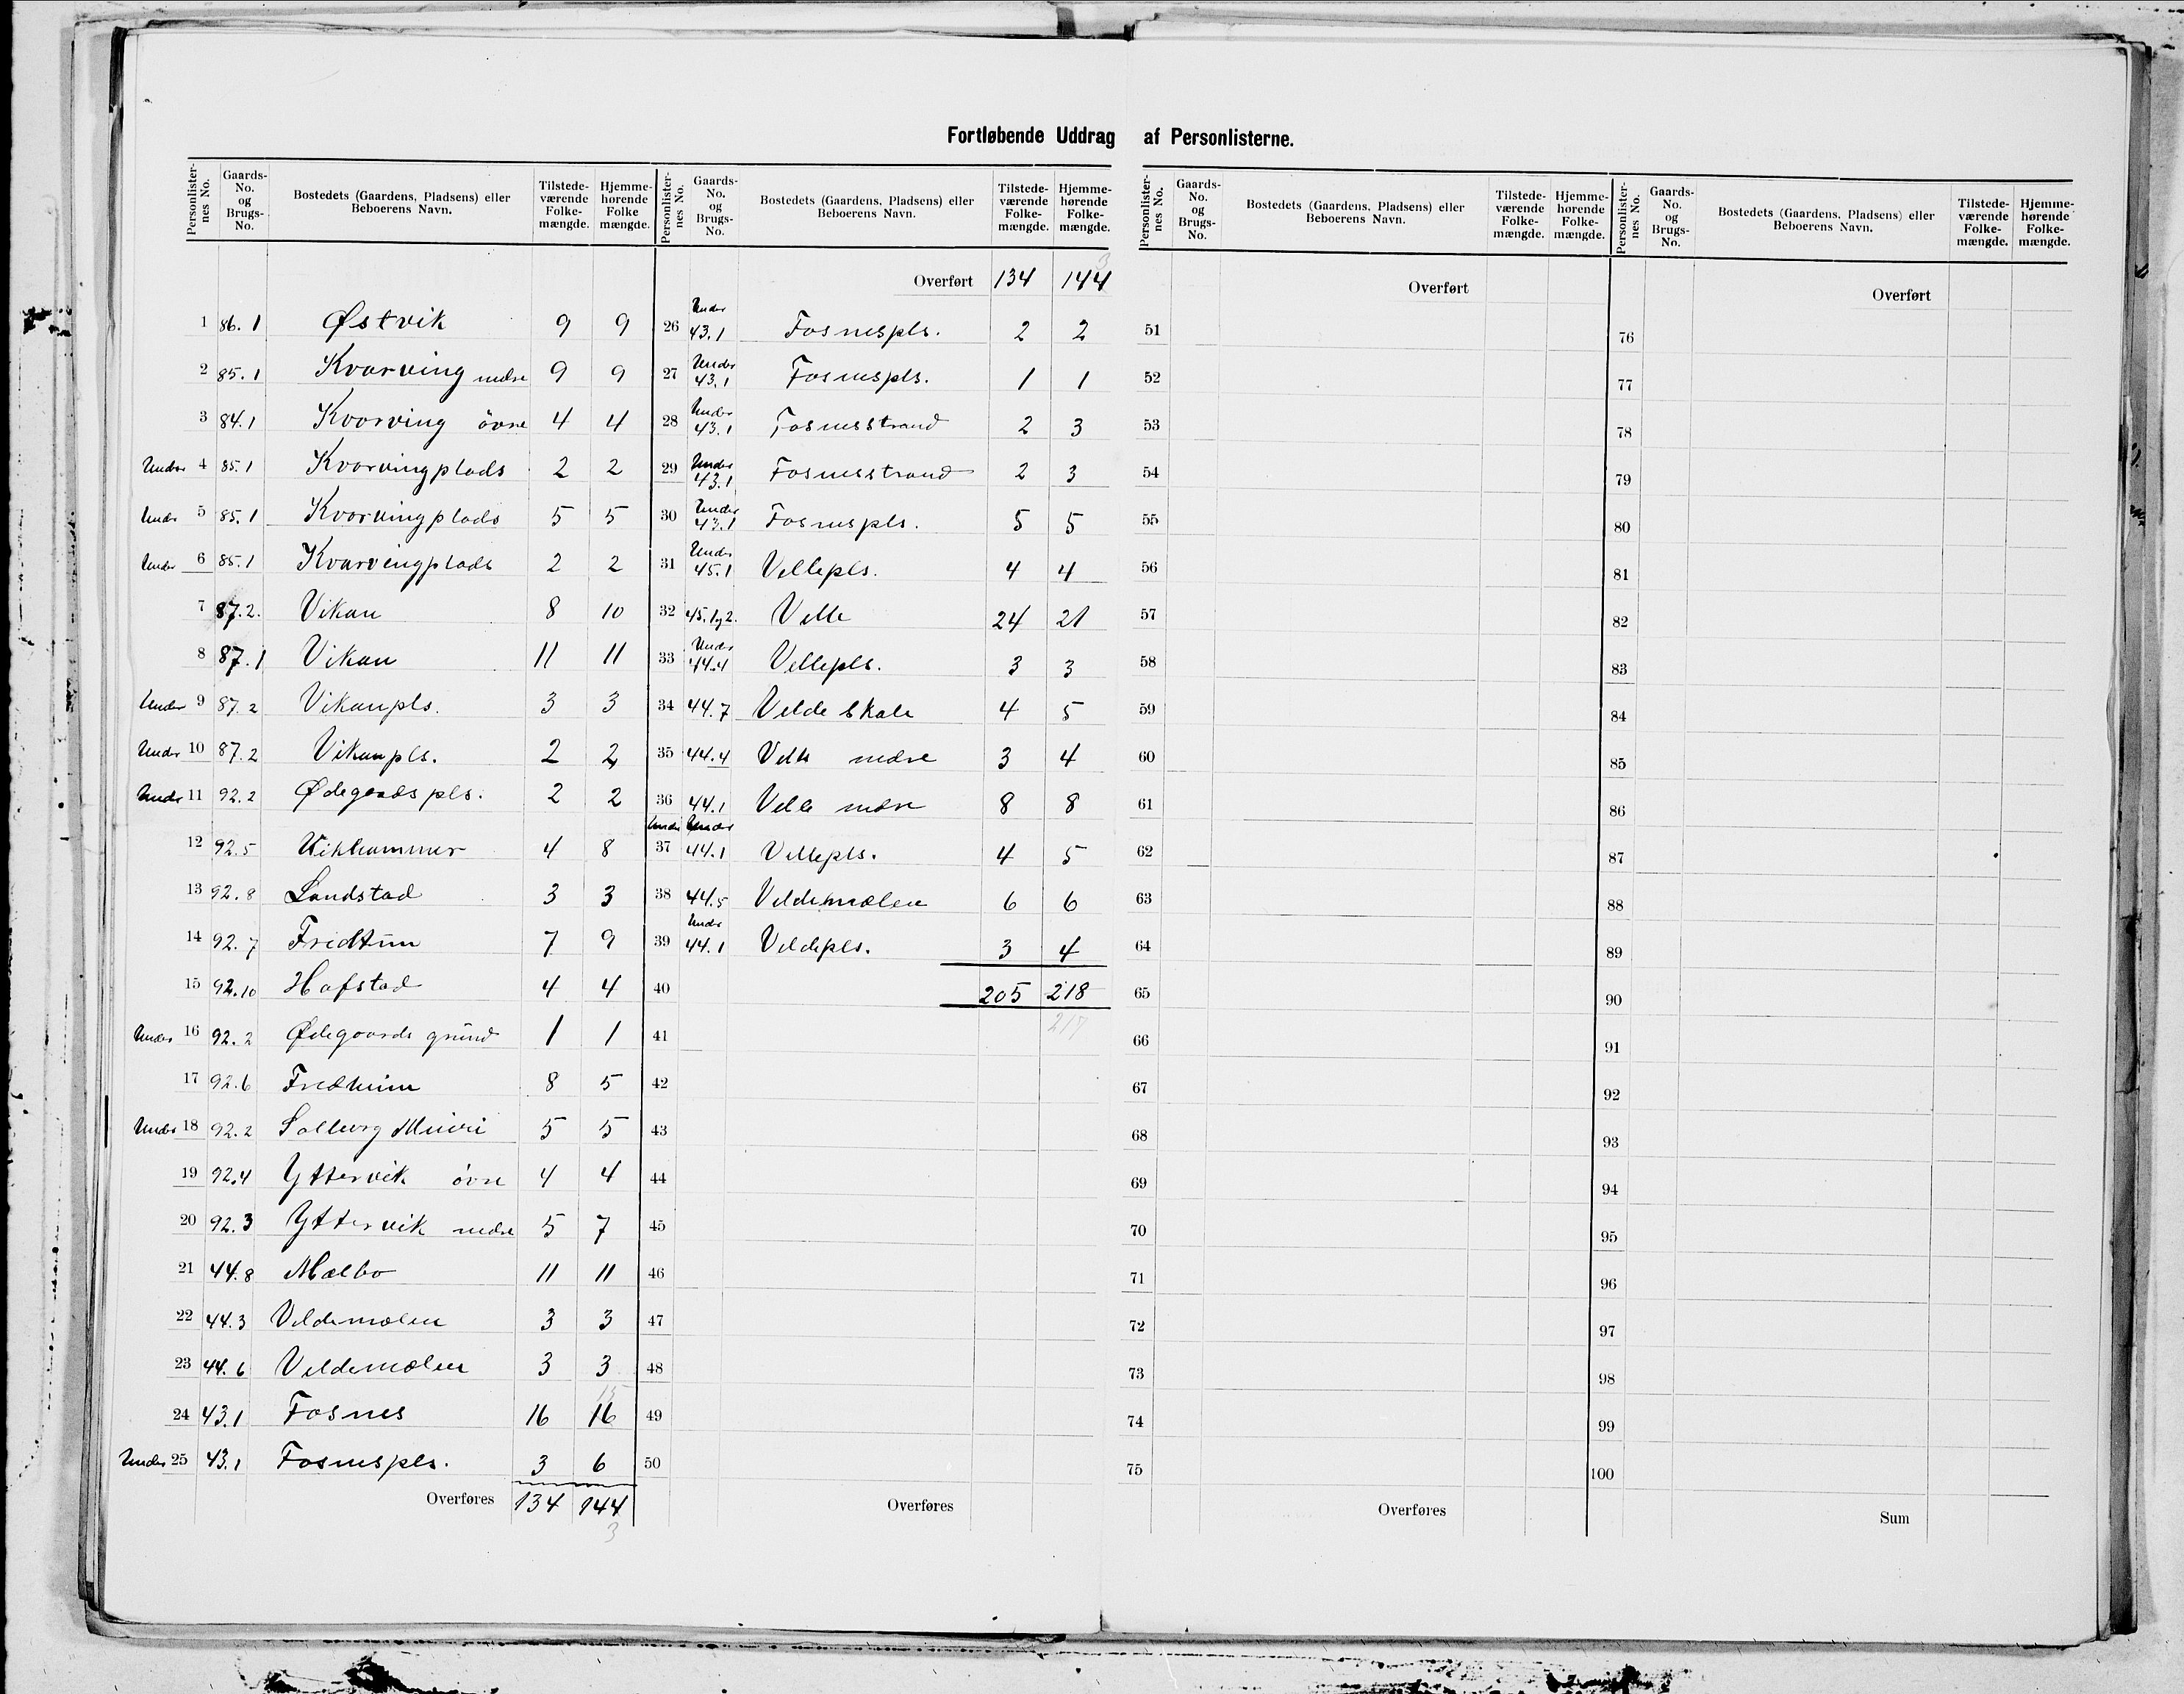 Fortløbende Uddrag af Personlisterne.
Personlister-nes No. Gaards-No. og Brugs-No. Bostedets (Gaardens, Pladsens) eller Beboerens Navn. Tilstede-værende Folke-mængde. Hjemme-hørende Folke mængde.
1 86.1 Østvik 9 9
2 85.1 Kvarving nedre 9 9
3 84.1 Kvarving övre 4 4
Under 4 85.1 Kvarvingplads 2 2
Under 5 85.1 Kvarvingplads 5 5
Under 6 85.1 Kvarvingplads 2 2
7 87.2. Vikan 8 10
8 87.1 Vikan 11 11
Under 9 87.2 Vikanpls. 3 3
Under 10 87.2 Vikanpls. 2 2
Under 11 92.2 Ødegaards pls. 2 2
12 92.5 Vikhammer 4 8
13 92.8 Landstad 3 3
14 92.7 Fridtun 7 9
15 92.10 Hafstad 4 4
Under 16 92.2 Ødegaards grund 1 1
17 92.6 Fredheim 8 5
Under 18 92.2 Solberg 5 5
19 92.4 Yttervik övre 4 4
20 92.3 Yttervik nedre 5 7
21 44.8 Mælbo 11 11
22 44.3 Veldemælen 3 3
23 44.6 Veldemælen 3 3
15
24 43.1 Fosnes 16 16
Under 25 43.1 Fosnespls. 3 6
Overføres 134 144
3
Personlister-nes No. Gaards-No. og Brugs-No. Bostedets (Gaardens, Pladsens) eller Beboerens Navn. Tilstede-værende Folke-mængde. Hjemme-hørende Folke-mængde.
3
Overført 134 144
26 Under 43.1 Fosnespls. 2 2
27 Under 43.1 Fosnespls. 1 1
28 Under 43.1 Fosnesstrand 2 3
29 Under 43.1 Fosnesstrand 2 3
30 Under 43.1 Fosnespls. 5 5
31 Under 45.1 Vellepls. 4 4
32 45.1 og 2. Velle 24 21
33 Under 44.4 Vellepls. 3 3
34 44.7 Velde Skole 4 5
35 44.4 Velle nedre 3 4
36 44.1 Velle nedre 8 8
Under Under
37 44.1 Vellepls. 4 5
38 44.5 Veldemælen 6 6
39 Under 44.1 Veldepls. 3 4
40 205 218
41 217
42
43
44
45
46
47
48
49
50
Overføres
Personlister-nes No. Gaards-No. og Brugs-No. Bostedets (Gaardens, Pladsens) eller Beboerens Navn. Tilstede-værende Folke-mængde. Hjemme-hørende Folke-mængde.
Overført
51
52
53
54
55
56
57
58
59
60
61
62
63
64
65
66
67
68
69
70
71
72
73
74
75
Overføres
Personlister-nes No. Gaards-No. og Brugs-No. Bostedets (Gaardens, Pladsens) eller Beboerens Navn. Tilstede-værende Folke-mængde. Hjemme-hørende Folke-mængde.
Overført
76
77
78
79
80
81
82
83
84
85
86
87
88
89
90
91
92
93
94
95
96
97
98
99
100
Sum